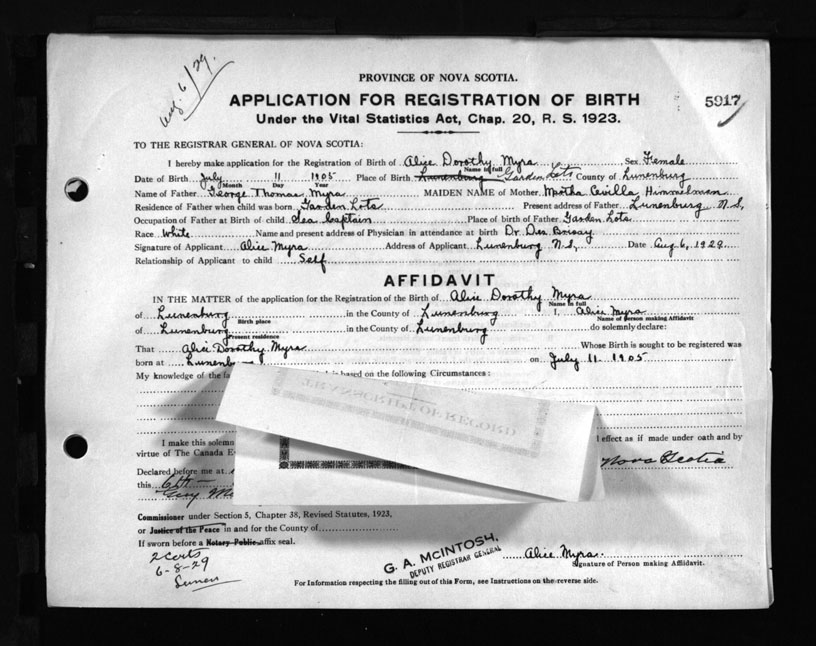 Aug. 6/29.
PROVINCE OF NOVA SCOTIA.
APPLICATION FOR REGISTRATION OF BIRTH
5917
Under the Vital Statistics Act, Chap. 20, R. S. 1923.
TO THE REGISTRAR GENERAL OF NOVA SCOTIA:
I hereby make application for the Registration of Birth of Alice Dorothy Myra Sex Female
Name in full
Date of Birth July 11 1905 Place of Birth Lunenburg Garden Lots County of Lunenburg
Month Day Year
Name of Father George Thomas Myra MAIDEN NAME of Mother Martha Cevilla Himmelman
Residence of Father when child was born Garden Lots Present address of Father Lunenburg N.S,
Occupation of Father at Birth of child Sea Captain Place of birth of Father Garden Lots
Race White Name and present address of Physician in attendance at birth Dr. Des Brisay
Signature of Applicant Alice Myra Address of Applicant Lunenburg N.S, Date Aug 6, 1929
Relationship of Applicant to child Self
AFFIDAVIT
IN THE MATTER of the application for the Registration of the Birth of Alice Dorothy Myra
Name in full
of Lunenburg in the County of Lunenburg I, Alice Myra
Birth place Name of person making Affidavit
of Lunenburg in the County of Lunenburg do solemnly declare:
Present residence
That Alice Dorothy Myra Whose Birth is sought to be registered was
born at on July 11 1905
My knowledge of the is based on the following Circumstances:
TRANSCRIPT OF RECORD
I make this effect as if made under oath and by
virtue of The Canada Nova Scotia
Declared before me at
this 6th
Guy
Commissioner under Section 5, Chapter 38, Revised Statutes, 1923,
or Justice of the Peace in and for the County of
If sworn before a Notary Public affix seal.
2 Certs
6-8-29
G. A. McINTOSH,
DEPUTY REGISTRAR GENERAL
Alice Myra.
Signature of Person making Affidavit.
For Information respecting the filling out of this Form, see Instructions on the reverse side.